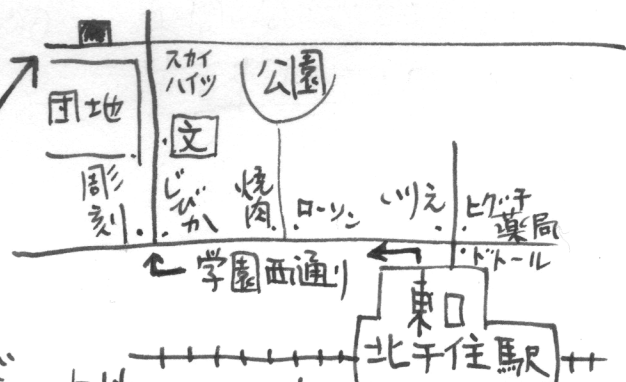 スカイ
ハイツ
公園
団地
文
彫刻
じびか
焼肉
ローソン
いりえ
ヒグチ
薬局
ドトール
学園西通り
東口
北千住駅